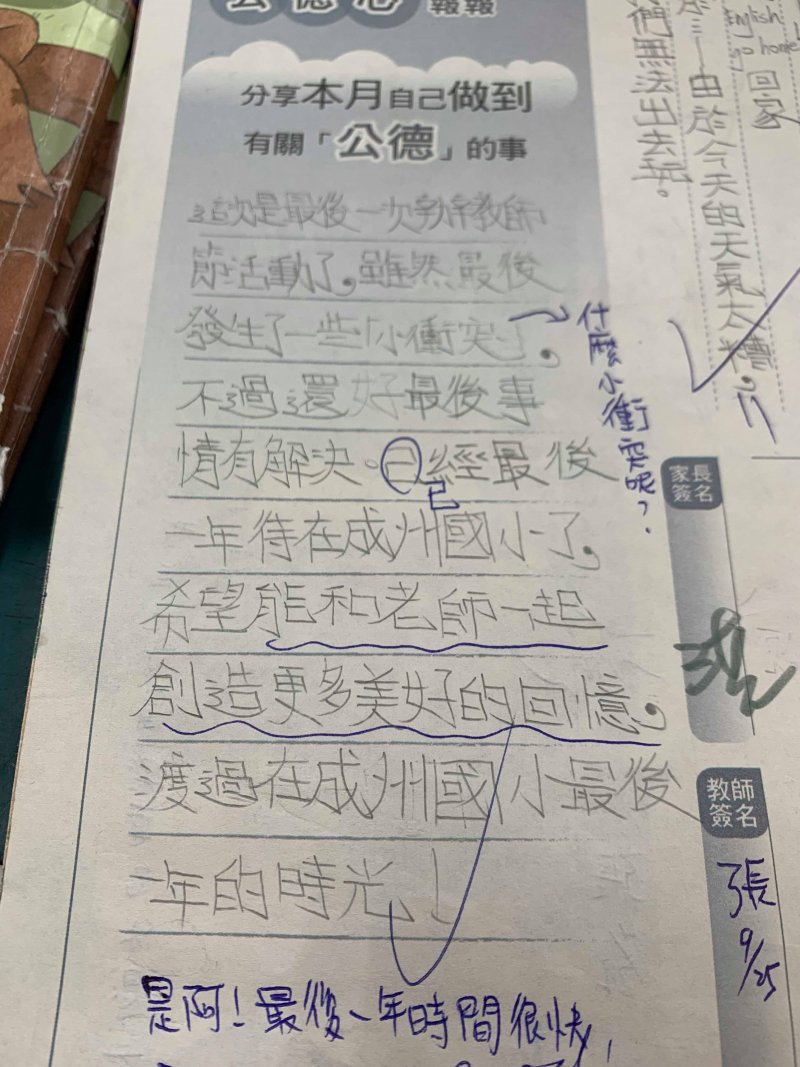 公德心 報報
分享本月自己做到
有關「公德」的事
這次是最後一次舉辦教師
節活動了。雖然最後
發生了一些「小衝突」,
不過還好最後事
情有解決。己經最後
一年待在成州國小了,
希望能和老師一起
創造更多美好的回憶。
渡過在成州國小最後
一年的時光!
什麼小衝突呢?
已
是阿!最後一年時間很快,
English
go home
回家
由於今天的天氣太糟,
們無法出去玩。
家長
簽名
教師
簽名
張
9/25